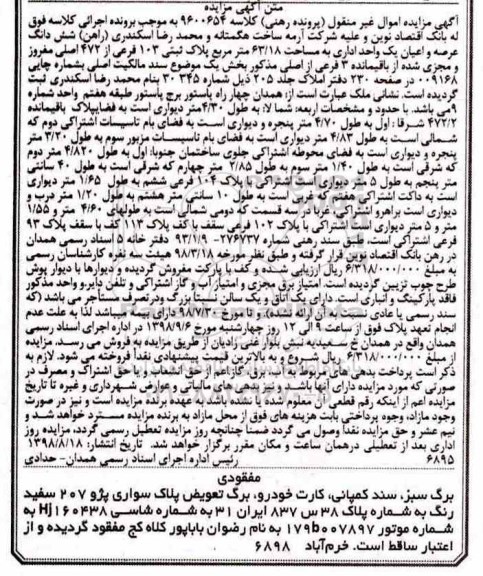 متن آگهی مزایده
آگهی مزایده اموال غیر منقول (پرونده رهنی) کلاسه ۹۶۰۰۶۵۴ به موجب پرونده اجرائی کلاسه فوق
له بانک اقتصاد نوین و علیه شرکت آرمه ساخت هگمتانه و محمد رضا اسکندری (راهن) شش دانگ
عرصه و اعیان یک واحد اداری به مساحت ۶۳/۱۸ متر مربع پلاک ثبتی ۱۰۳ فرعی از ۴۷۲ اصلی مفروز
و مجزی شده از باقیمانده ۳ فرعی از اصلی مذکور بخش یک موضوع سند مالکیت اصلی بشماره چاپی
۰۰۹۱۶۸ در صفحه ۲۳۰ دفتر املاک جلد ۲۰۵ ذیل شماره ۳۰۳۴۵ بنام محمد رضا اسکندری ثبت
گردیده است. نشانی ملک عبارت است از: همدان چهار راه پاستور برج پاستور طبقه هفتم واحد شماره
۹می باشد. با حدود و مشخصات اربعه: شمالا: به طول ۴/۳۰متر دیواری است به فضاییپلاک باقیمانده
۴۷۲/۲ شرقا : اول به طول ۴/۷۰ متر پنجره و دیواری است به فضای بام تاسیسات اشتراکی دوم که
شمالی است به طول ۴/۸۳ متر دیواری است به فضای بام تاسیسات مزبور سوم به طول ۳/۲۰ متر
پنجره و دیواری است به فضای محوطه اشتراکی جلوی ساختمان جنوبا: اول به طول ۴/۸۲۰ متر دوم
که شرقی است به طول ۱/۴۰ متر سوم به طول ۲/۸۵ متر چهارم که شرقی است به طول ۴۰ سانتی
متر پنجم به طول ۵ متر دیواری است اشتراکی با پلاک ۱۰۴ فرعی ششم به طول ۱/۶۵ متر دیواری
است به داکت اشتراکی هفتم که غربی است به طول ۱۰ سانتی متر هشتم به طول ۱/۲۰ متر درب و
دیواری است براهرو اشتراکی، غربا: در سه قسمت که دومی شمالی است به طولهای ۴/۶۰ متر و ۱/۵۵
متر و ۵ متر دیواری است اشتراکی با پلاک ۱۰۲ فرعی سقف با کف پلاک ۱۱۳ کف با سقف پلاک ۹۳
فرعی اشتراکی است، طبق سند رهنی شماره ۲۷۶۷۳۷- ۹۳/۱/۹ دفتر خانه ۵ اسناد رسمی همدان
در رهن بانک اقتصاد نوین قرار گرفته و طبق نظر مورخه ۹۸/۳/۱۸ هیئت سه نفره کارشناسان رسمی
به مبلغ ۶/۳۱۸/۰۰۰/۰۰۰ ریال ارزیابی شده و کف با پارکت مفروش گردیده و دیوارها با دیوار پوش
طرح چوب تزیین گردیده است. امتیاز برق مجزی و امتیاز آب و گاز اشتراکی و تلفن دایر.و واحد مذکور
فاقد پارکینگ و انباری است. دارای یک اتاق و یک سالن نسبتا بزرگ ودرتصرف مستأجر می باشد (که
سند رسمی یا عادی نسبت به آن ارائه نشده). و تا مورخ ۹۸/۷/۳۰ دارای بیمه میباشد لذا به علت عدم
انجام تعهد پلاک فوق از ساعت ۹ الی ۱۲ روز چهارشنبه مورخ ۱۳۹۸/۹/۶ در اداره اجرای اسناد رسمی
همدان واقع در همدان خ سعیدیه نبش بلوار غنی زادیان از طریق مزایده به فروش می رسد. مزایده
از مبلغ ۶/۳۱۸/۰۰۰/۰۰۰ ریال شروع و به بالاترین قیمت پیشنهادی نقدا فروخته می شود. لازم به
ذکر است پرداخت بدهی های مربوط به آب، برق، گاز اعم از حق انشعاب و یا حق اشتراک و مصرف در
صورتی که مورد مزایده دارای آنها باشد و نیز بدهی های مالیاتی و عوارض شهرداری و غیره تا تاریخ
مزایده اعم از اینکه رقم قطعی آن معلوم شده یا نشده باشد به عهده برنده مزایده است و نیز در صورت
وجود مازاد، وجوه پرداختی بابت هزینه های فوق از محل مازاد به برنده مزایده مسترد خواهد شد و
نیم عشر و حق مزایده نقدا وصول می گردد ضمنا چنانچه روز مزایده تعطیل رسمی گردد، مزایده روز
اداری بعد از تعطیلی درهمان ساعت و مکان مقرر برگزار خواهد شد. تاریخ انتشار: ۱۳۹۸/۸/۱۸
۶۸۹۵ رئیس اداره اجرای اسناد رسمی همدان- حدادی
مفقودی
برگ سبز، سند کمپانی، کارت خودرو، برگ تعویض پلاک سواری پژو ۲۰۷ سفید
رنگ به شماره پلاک ۳۸ س ۸۳۷ ایران ۳۱ به شماره شاسی Hj۱۶۰۴۳۸ به
شماره موتور ۱۷۹b۰۰۷۸۹۷ به نام رضوان باباپور کلاه کج مفقود گردیده و از
اعتبار ساقط است. خرم‌آباد ۶۸۹۸